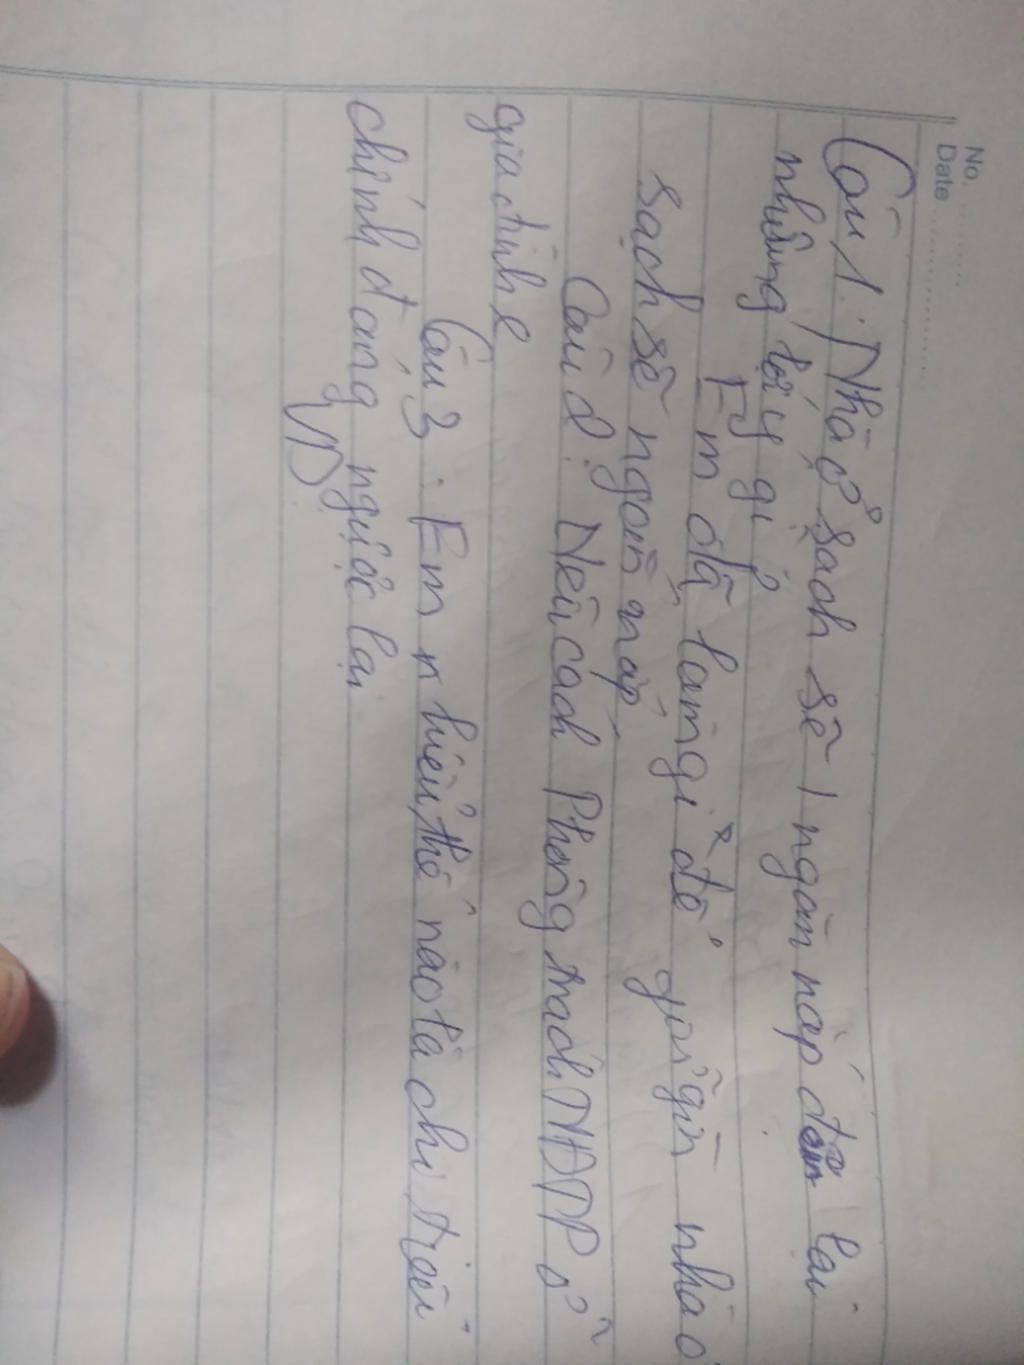 No.
Date
Câu 1. Nhà ở sạch sẽ, ngăn nắp đem lại
những lợi gì?
Em đã làm gì để giữ gìn nhà ở
sạch sẽ ngăn nắp
Câu 2. Nêu cách Phòng tránh NĐTP ở
gia đình
Câu 3. Em hiểu thế nào là chi tiêu
chính đáng ngược lại
VD